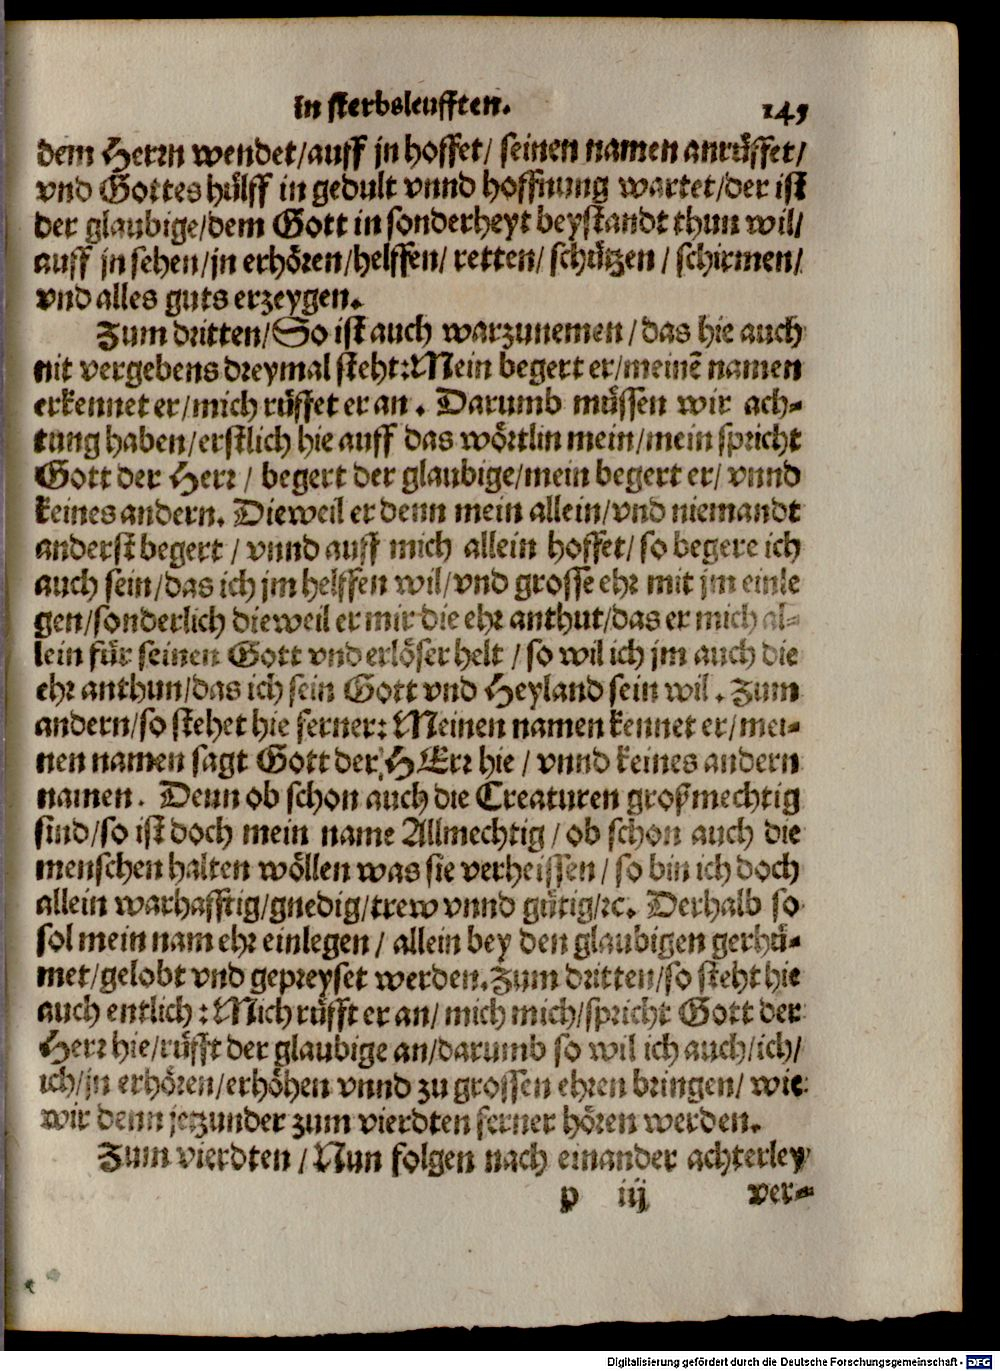 In sterbsleufften. 145
dem Herrn wendet/auff jn hoffet/ seinen namen anrüffet/
vnd Gottes hülff in gedult vnnd hoffnung wartet/der ist
der glaubige/dem Gott in sonderheyt beystandt thun wil/
auff jn sehen/jn erhören/helffen/ retten/ schützen / schirmen/
vnd alles guts erzeygen.
Zum dritten/So ist auch warzunemen/das hie auch
nit vergebens dreymal steht:Mein begert er/meinẽ namen
erkennet er/mich rüffet er an. Darumb müssen wir ach-
tung haben/erstlich hie auff das wörtlin mein/mein spricht
Gott der Herr / begert der glaubige/mein begert er/ vnnd
keines andern. Dieweil er denn mein allein/vnd niemandt
anderst begert / vnnd auff mich allein hoffet/ so begere ich
auch sein/das ich jm helffen wil/vnd grosse ehr mit jm einle
gen/sonderlich dieweil er mir die ehr anthut/das er mich al-
lein für seinen Gott vnd erlöser helt / so wil ich jm auch die
ehr anthun/das ich sein Gott vnd Heyland sein wil. Zum
andern/so stehet hie ferner: Meinen namen kennet er/mei-
nen namen sagt Gott der HErr hie / vnnd keines andern
namen. Denn ob schon auch die Creaturen großmechtig
sind/so ist doch mein name Allmechtig / ob schon auch die
menschen halten wöllen was sie verheissen / so bin ich doch
allein warhafftig/gnedig/trew vnnd gütig/ꝛc. Derhalb so
sol mein nam ehr einlegen / allein bey den glaubigen gerhü-
met/gelobt vnd gepreyset werden. Zum dritten/so steht hie
auch entlich : Mich rüfft er an/ mich mich/spricht Gott der
Herr hie/rüfft der glaubige an/darumb so wil ich auch/ich/
ich/jn erhören/erhöhen vnnd zu grossen ehren bringen/ wie
wir denn jetzunder zum vierdten ferner hören werden.
Zum vierdten / Nun folgen nach einander achterley
p iij ver-
Digitalisierung gefördert durch die Deutsche Forschungsgemeinschaft - DFG